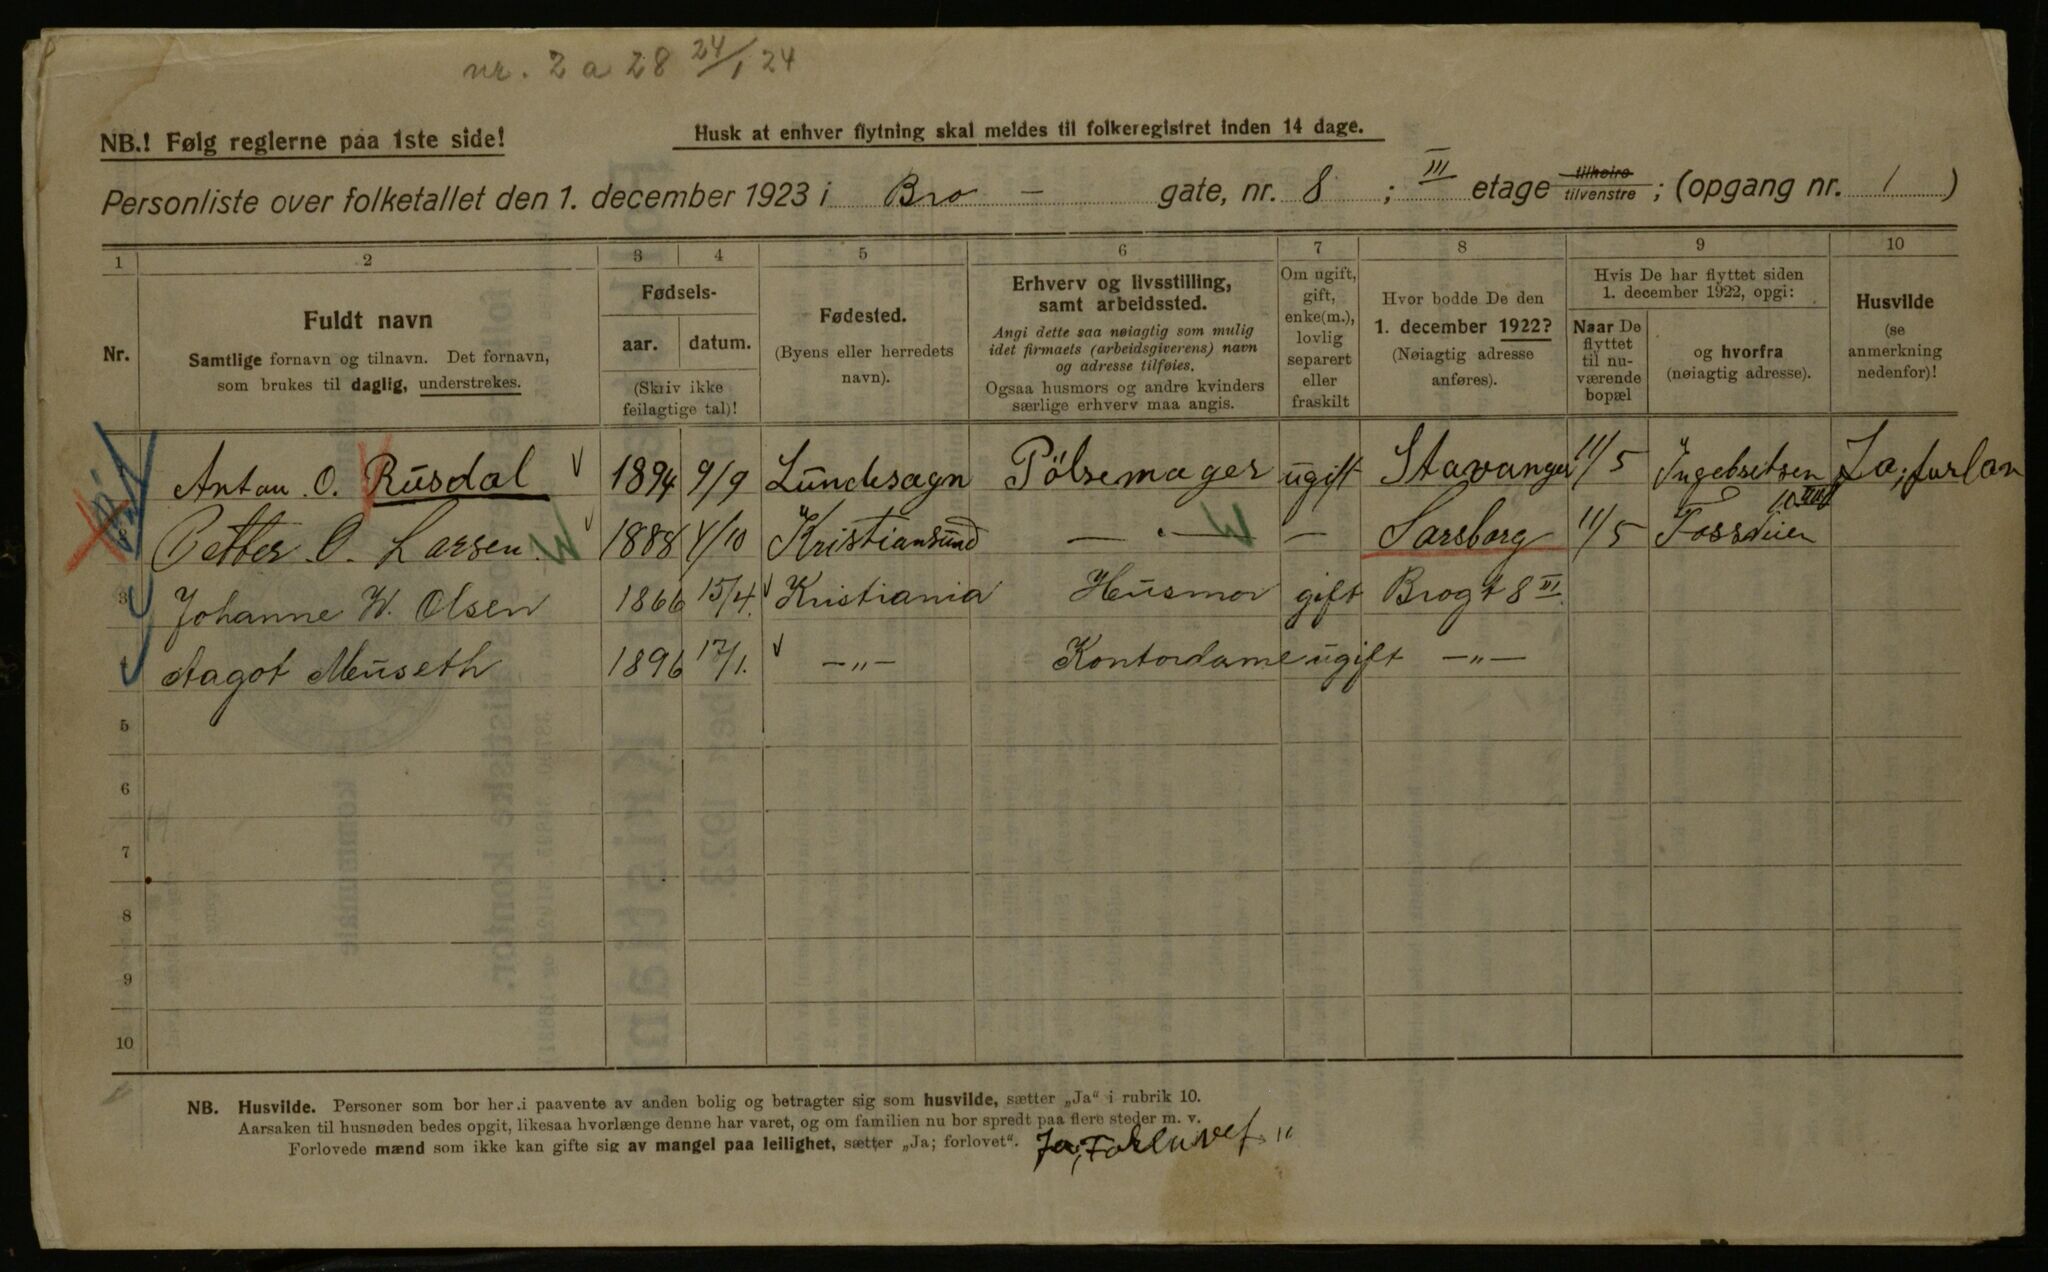 nr. 2 a 28 24/1 24
NB.! Følg reglerne paa 1ste side!
Husk at enhver flytning skal meldes til folkeregistret inden 14 dage.
Personliste over folketallet den 1. december 1923 i Bro - gate, nr. 8; III etage tilhøire/tilvenstre; (opgang nr. 1)
1 2 3 4 5 6 7 8 9 10
Nr.
Fuldt navn
Samtlige fornavn og tilnavn. Det fornavn,
som brukes til daglig, understrekes.
Fødsels-
aar. datum.
(Skriv ikke
feilagtige tal)!
Fødested.
(Byens eller herredets
navn).
Erhverv og livsstilling,
samt arbeidssted.
Angi dette saa nøiagtig som mulig
idet firmaets (arbeidsgiverens) navn
og adresse tilføies.
Ogsaa husmors og andre kvinders
særlige erhverv maa angis.
Om ugift,
gift,
enke(m.),
lovlig
separert
eller
fraskilt
Hvor bodde De den
1. december 1922?
(Nøiagtig adresse
anføres).
Hvis De har flyttet siden
1. december 1922, opgi:
Naar De
flyttet
til nu-
værende
bopæl
og hvorfra
(nøiagtig adresse).
Husvilde
(se
anmerkning
nedenfor)!
Anton. O. Rusdal 1894 9/9 Lundesogn Pölsemager ugift Stavanger 11/5 Ingebretsen Ja; forlov
Petter. O. Larsen. 1888 4/10 Kristiansund — " — — Sarsborg 11/5
3 Johanne W. Olsen 1866 15/4. Kristiania Husmor gift Brogt 8 III.
Aagot Museth 1896 17/1. — " — Kontordame ugift — " —
5
6
7
8
9
10
NB. Husvilde. Personer som bor her i paavente av anden bolig og betragter sig som husvilde, sætter „Ja“ i rubrik 10.
Aarsaken til husnøden bedes opgit, likesaa hvorlænge denne har varet, og om familien nu bor spredt paa flere steder m. v.
Forlovede mænd som ikke kan gifte sig av mangel paa leilighet, sætter „Ja; forlovet“. Ja, Forlovet. "